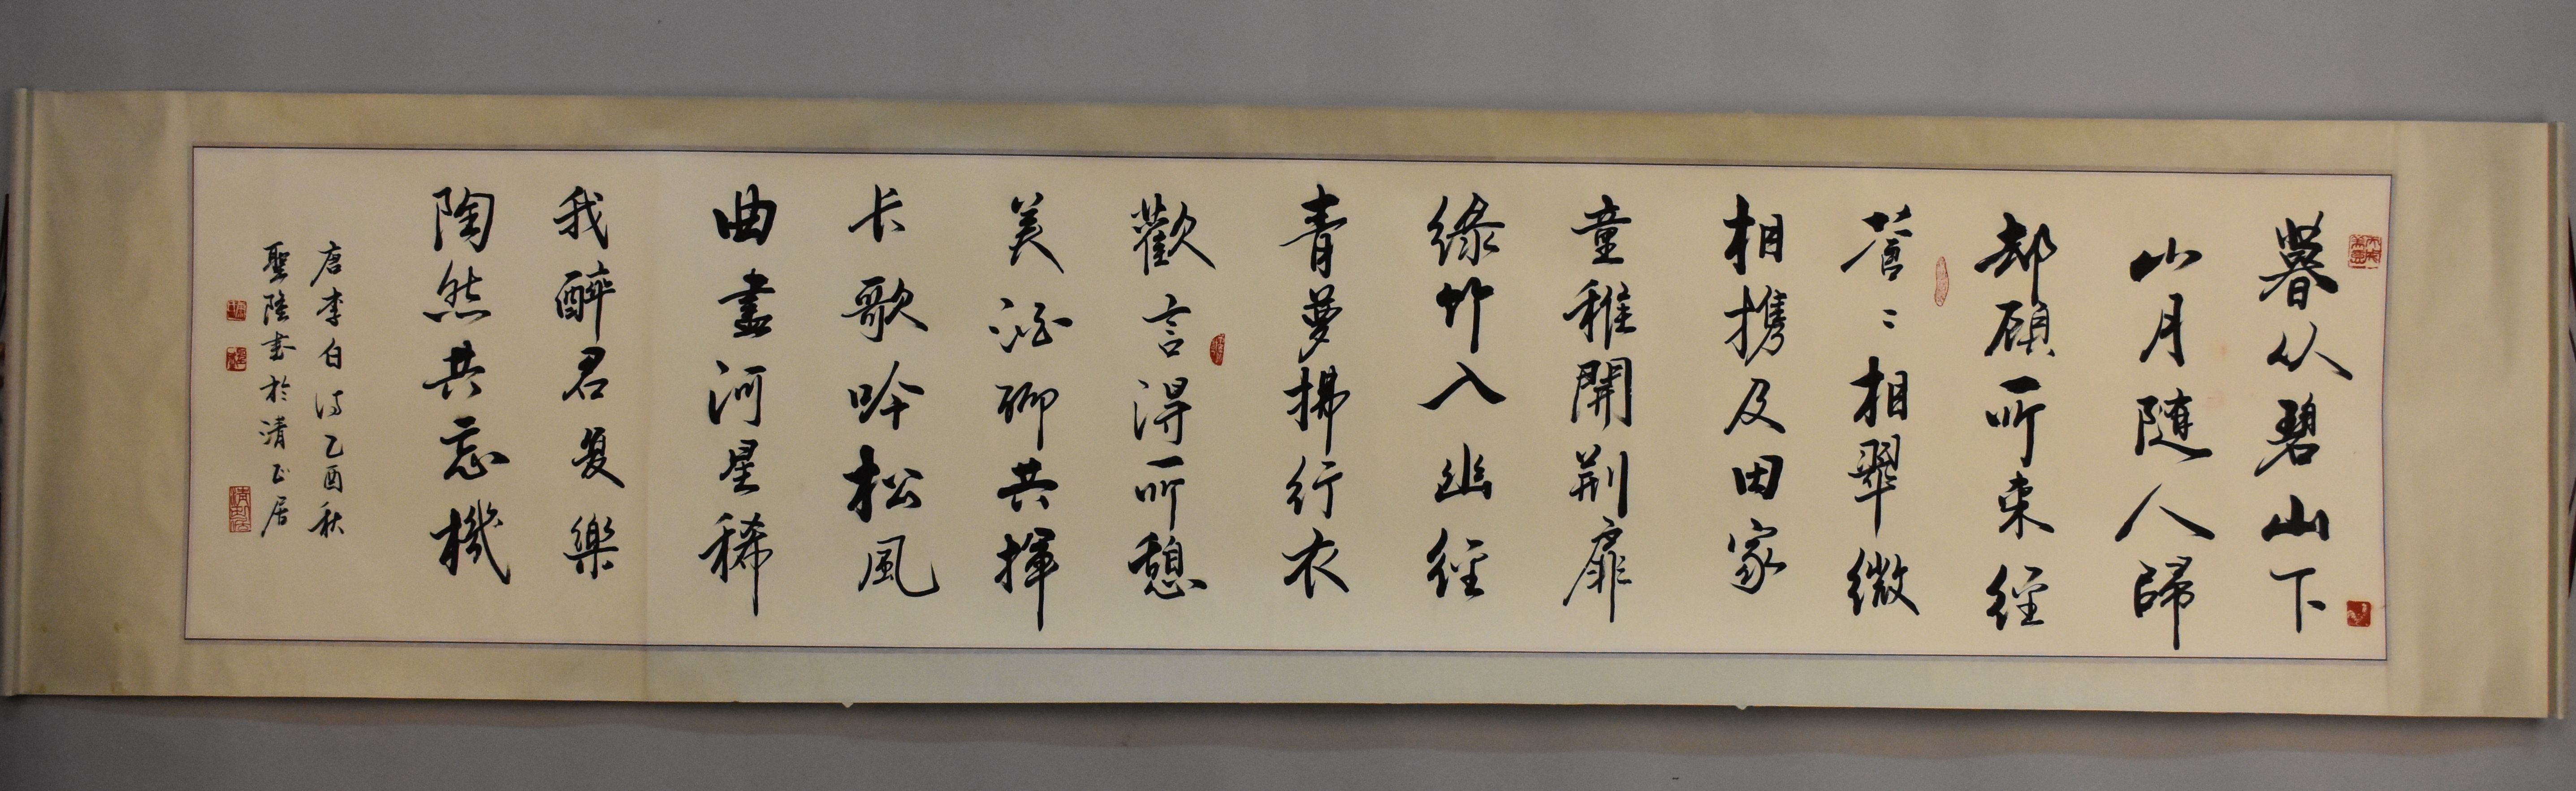 暮从碧山下
山月随人歸
却顧所来径
蒼〻相翠微
相携及田家
童稚開荆扉
緑竹入幽径
青夢拂行衣
歡言得所憩
美酒聊共揮
长歌吟松風
曲盡河星稀
我醉君复樂
陶然共忘機
唐李白诗乙酉秋
聖陸书於清正居